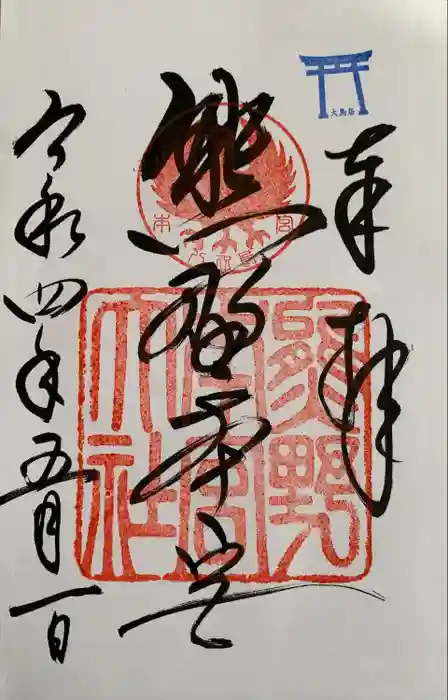 大鳥居
奉拝
熊野本宮
熊野本宮大社
令和四年五月一日